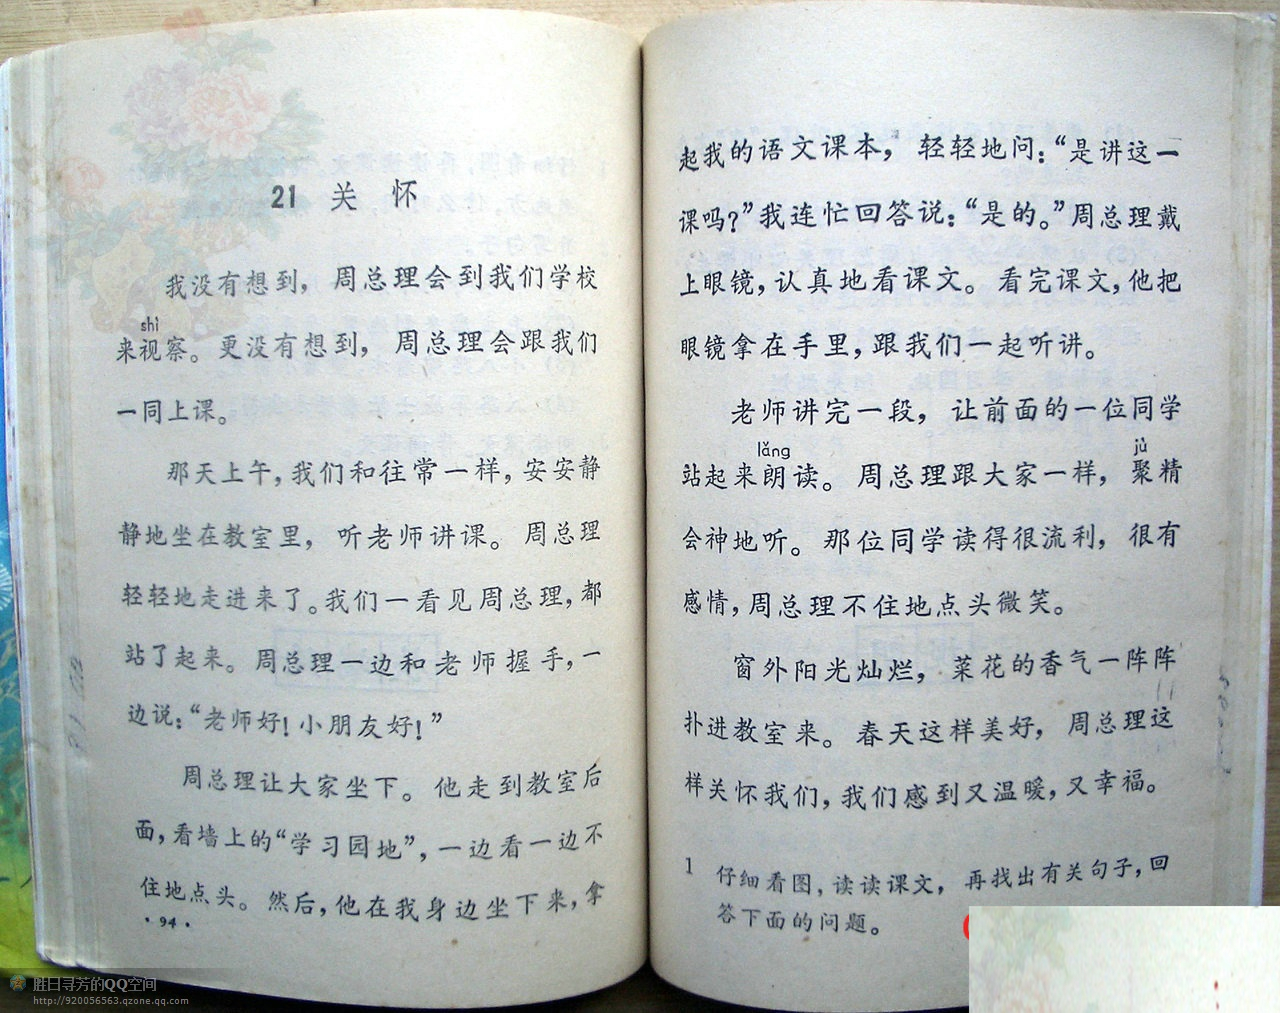 21 关 怀
我没有想到，周总理会到我们学校
shì
来视察。更没有想到，周总理会跟我们
一同上课。
那天上午，我们和往常一样，安安静
静地坐在教室里，听老师讲课。周总理
轻轻地走进来了。我们一看见周总理，都
站了起来。周总理一边和老师握手，一
边说：“老师好！小朋友好！”
周总理让大家坐下。他走到教室后
面，看墙上的“学习园地”，一边看一边不
住地点头。然后，他在我身边坐下来，拿
·94·
起我的语文课本，轻轻地问：“是讲这一
课吗？”我连忙回答说：“是的。”周总理戴
上眼镜，认真地看课文。看完课文，他把
眼镜拿在手里，跟我们一起听讲。
老师讲完一段，让前面的一位同学
lǎng jù
站起来朗读。周总理跟大家一样，聚精
会神地听。那位同学读得很流利，很有
感情，周总理不住地点头微笑。
窗外阳光灿烂，菜花的香气一阵阵
扑进教室来。春天这样美好，周总理这
样关怀我们，我们感到又温暖，又幸福。
1 仔细看图，读读课文，再找出有关句子，回
答下面的问题。
胜日寻芳的QQ空间
http://920056563.qzone.qq.com